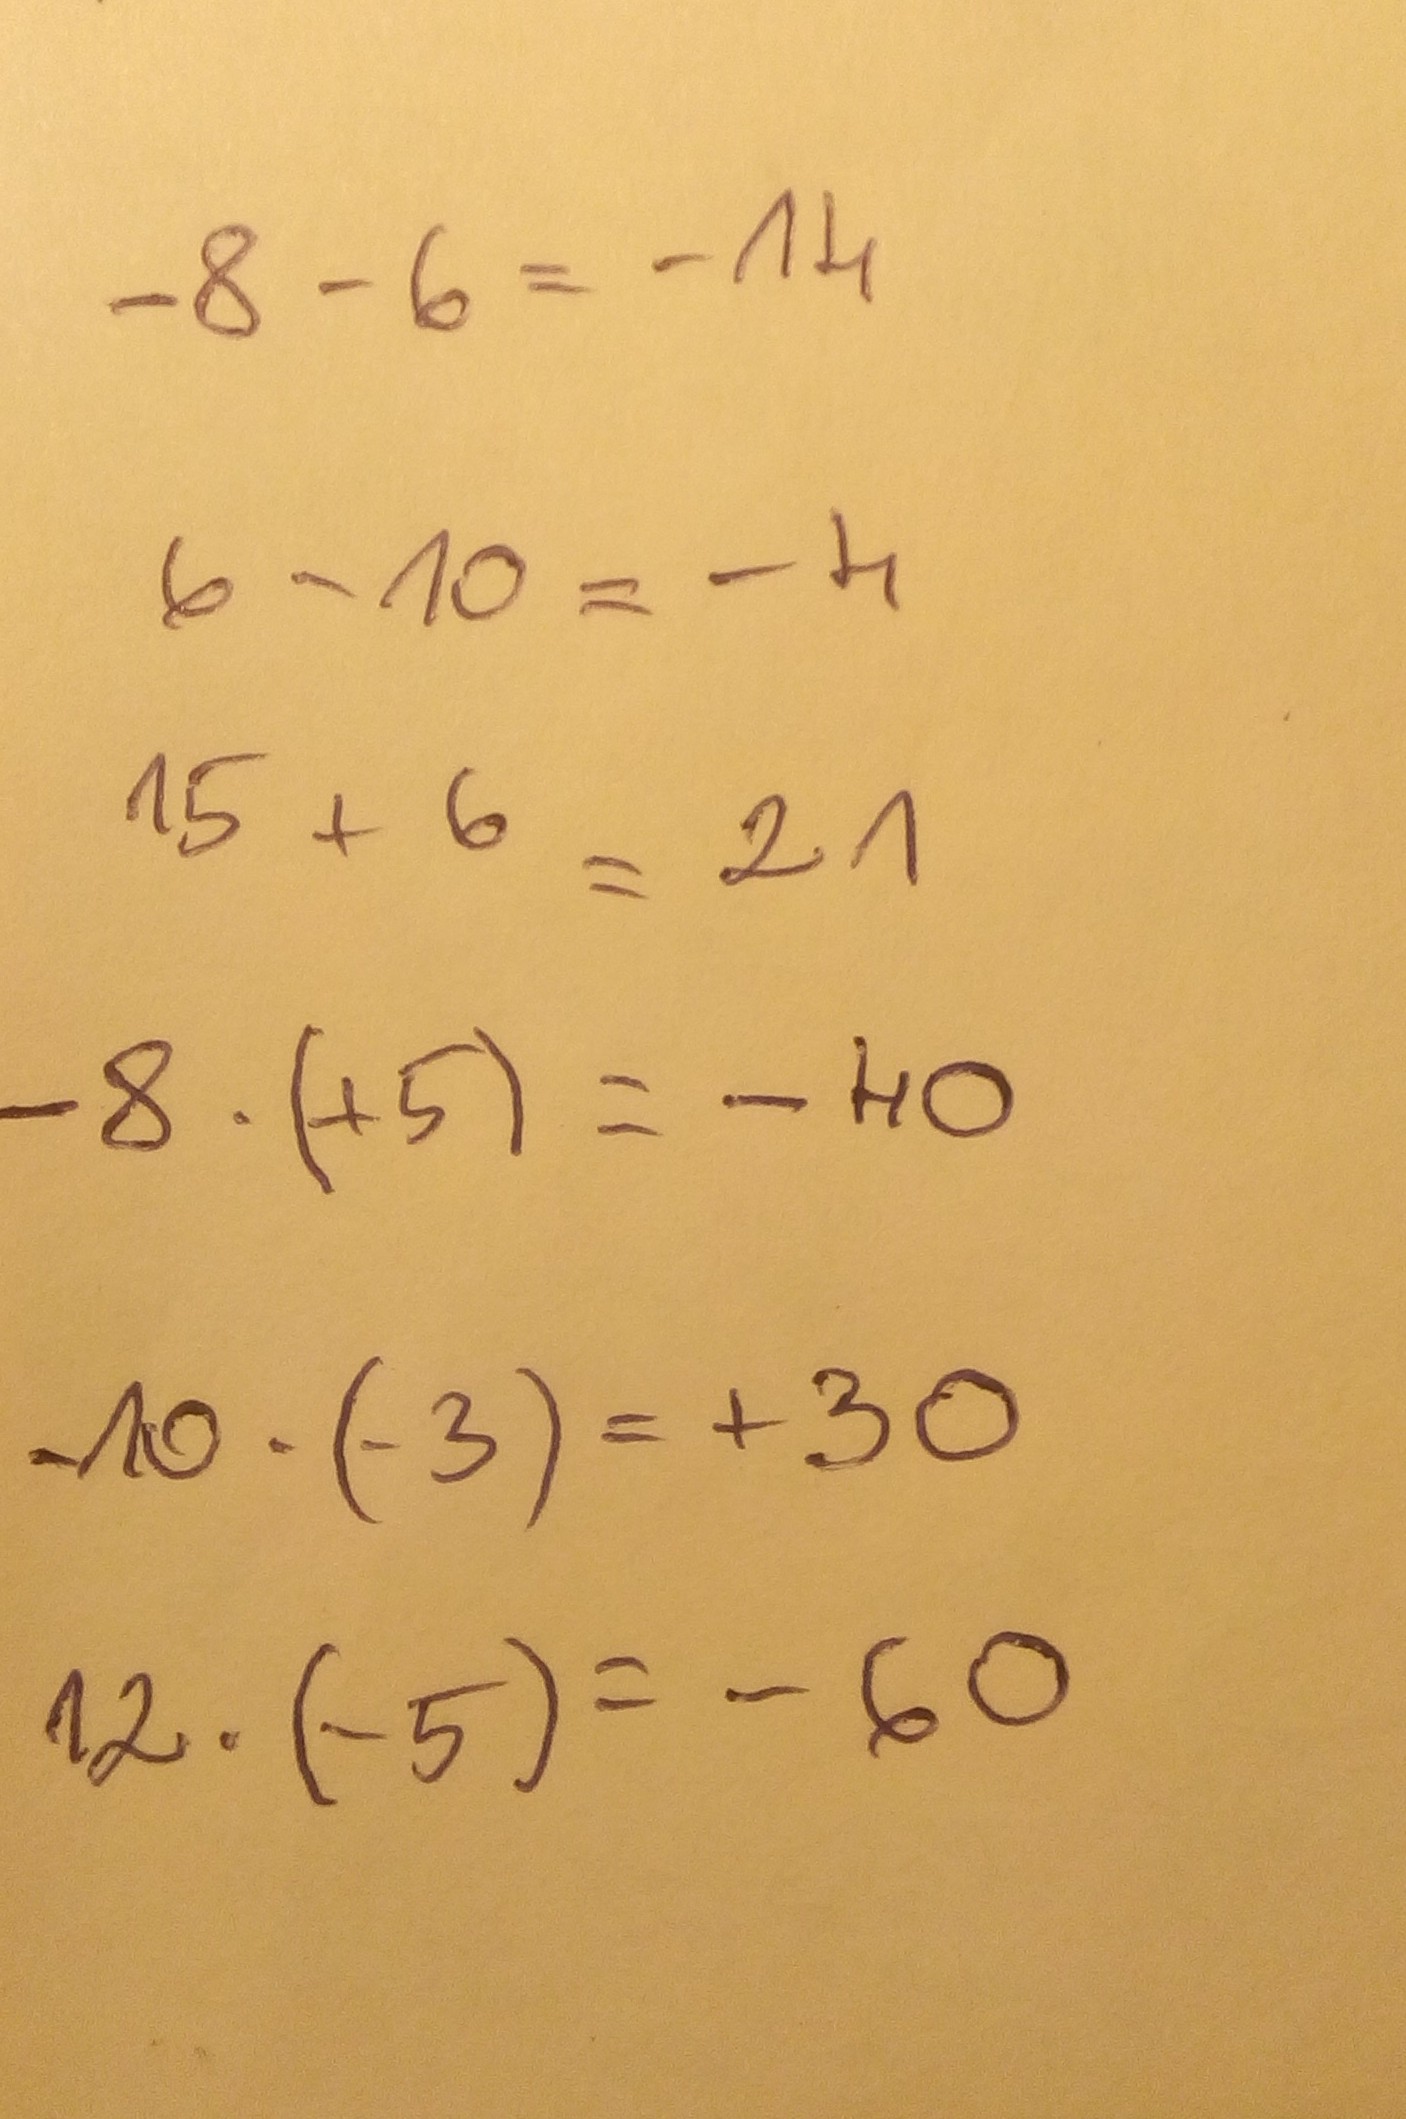 -8 - 6 = -14
6 - 10 = -4
15 + 6 = 21
-8 · (+5) = -40
-10 · (-3) = +30
12 · (-5) = -60